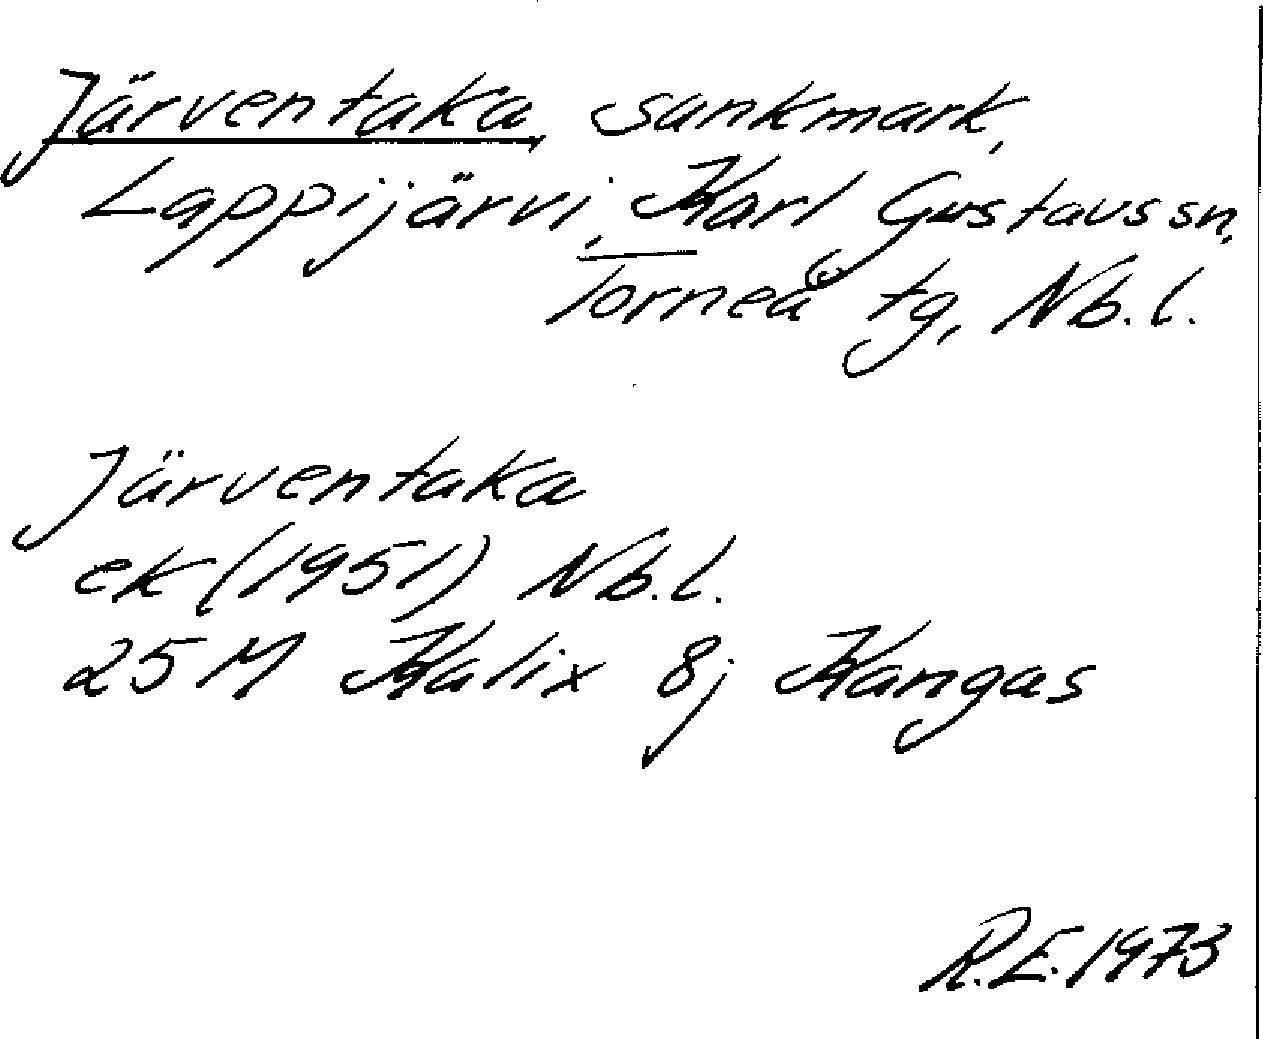 Järventaka, sankmark,
Lappijärvi, Karl Gustavs sn,
Torneå tg, Nb. l.
Järventaka
ek (1951) Nb. l.
25 M Kalix 8j Kangas
R.E. 1973